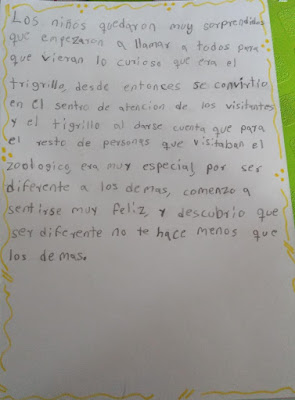 Los niños quedaron muy sorprendidos
que empezaron a llamar a todos para
que vieran lo curioso que era el
trigrillo, desde entonses se convirtio
en el sentro de atencion de los visitantes
y el tigrillo al darse cuenta que para
el resto de personas que visitaban el
zoologico, era muy especial por ser
diferente a los demas, comenzo a
sentirse muy feliz, y descubrio que
ser diferente no te hace menos que
los demas.